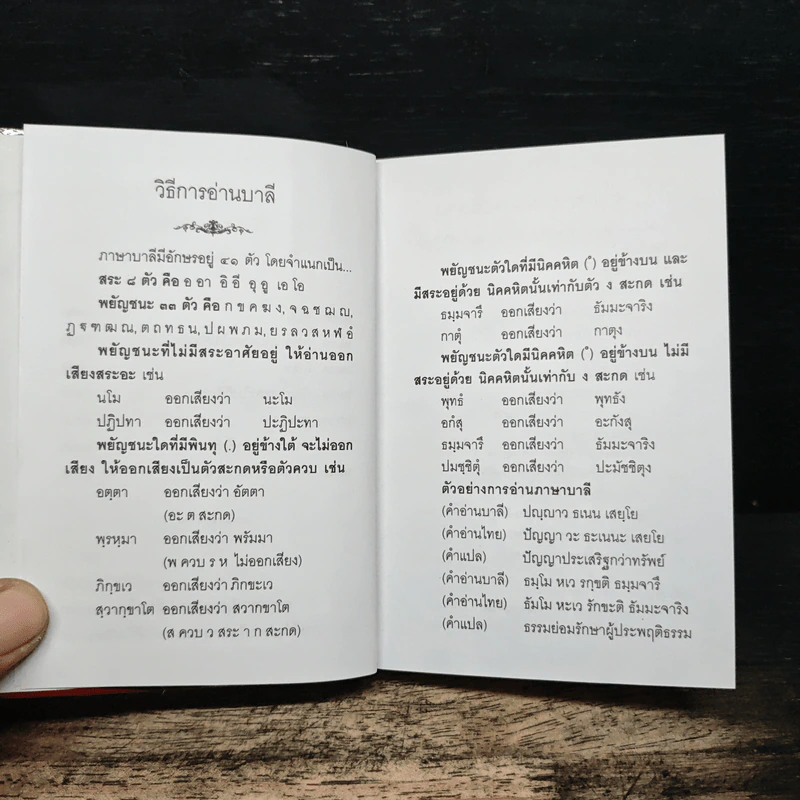 วิธีการอ่านบาลี
ภาษาบาลีมีอักษรอยู่ ๔๑ ตัว โดยจำแนกเป็น...
สระ ๘ ตัว คือ อ อา อิ อี อุ อู เอ โอ
พยัญชนะ ๓๓ ตัว คือ ก ข ค ฆ ง, จ ฉ ช ฌ ญ,
ฏ ฐ ฑ ฒ ณ, ต ถ ท ธ น, ป ผ พ ภ ม, ย ร ล ว ส ห ฬ อํ
พยัญชนะที่ไม่มีสระอาศัยอยู่ ให้อ่านออก
เสียงสระอะ เช่น
นโม ออกเสียงว่า นะโม
ปฏิปทา ออกเสียงว่า ปะฏิปะทา
พยัญชนะใดที่มีพินทุ (.) อยู่ข้างใต้ จะไม่ออก
เสียง ให้ออกเสียงเป็นตัวสะกดหรือตัวควบ เช่น
อตฺตา ออกเสียงว่า อัตตา
(อะ ต สะกด)
พฺรหฺมา ออกเสียงว่า พรัมมา
(พ ควบ ร ห ไม่ออกเสียง)
ภิกฺขเว ออกเสียงว่า ภิกขะเว
สฺวากฺขาโต ออกเสียงว่า สวากขาโต
(ส ควบ ว สระ า ก สะกด)
พยัญชนะตัวใดที่มีนิคคหิต (ํ) อยู่ข้างบน และ
มีสระอยู่ด้วย นิคคหิตนั้นเท่ากับตัว ง สะกด เช่น
ธมฺมจารึ ออกเสียงว่า ธัมมะจาริง
กาตุํ ออกเสียงว่า กาตุง
พยัญชนะตัวใดมีนิคคหิต (ํ) อยู่ข้างบน ไม่มี
สระอยู่ด้วย นิคคหิตนั้นเท่ากับ ง สะกด เช่น
พุทธํ ออกเสียงว่า พุทธัง
อกํสุ ออกเสียงว่า อะกังสุ
ธมฺมจารึ ออกเสียงว่า ธัมมะจาริง
ปมชฺชิตุํ ออกเสียงว่า ปะมัชชิตุง
ตัวอย่างการอ่านภาษาบาลี
(คำอ่านบาลี) ปญฺญาว ธเนน เสยฺโย
(คำอ่านไทย) ปัญญา วะ ธะเนนะ เสยโย
(คำแปล) ปัญญาประเสริฐกว่าทรัพย์
(คำอ่านบาลี) ธมฺโม หเว รกฺขติ ธมฺมจารึ
(คำอ่านไทย) ธัมโม หะเว รักขะติ ธัมมะจาริง
(คำแปล) ธรรมย่อมรักษาผู้ประพฤติธรรม